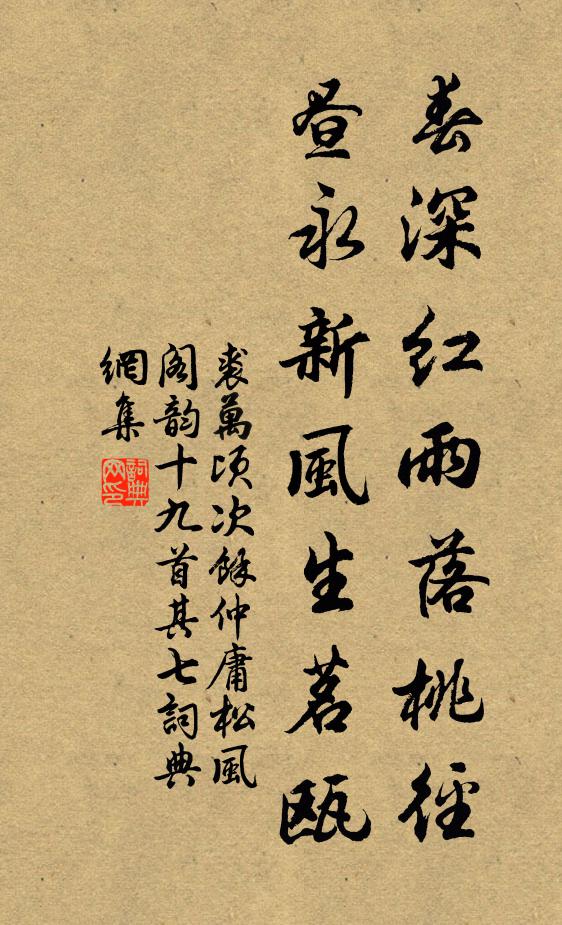 春深紅雨落桃徑
晝永新風生茗甌
裘萬頃次餘仲庸松風
閣韵十九首其七詞典
網集
詞典網印